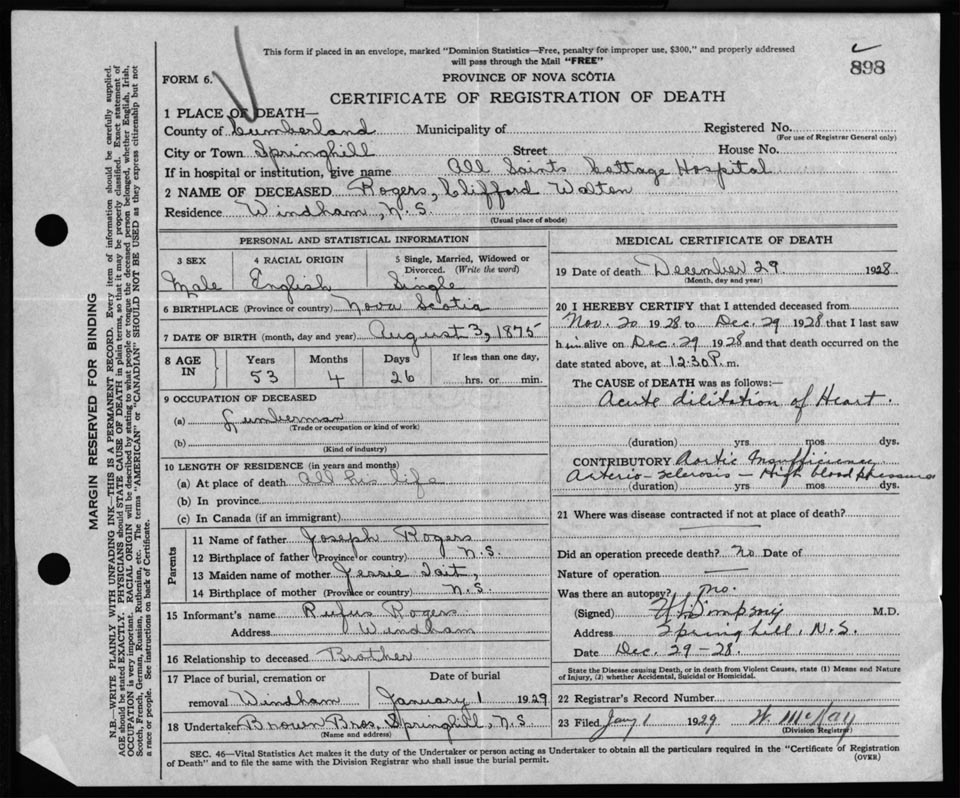 This form if placed in an envelope, marked "Dominion Statistics—Free, penalty for improper use, $300," and properly addressed
will pass through the Mail "FREE"
898
FORM 6.
PROVINCE OF NOVA SCOTIA
CERTIFICATE OF REGISTRATION OF DEATH
1 PLACE OF DEATH—
County of Cumberland Municipality of Registered No.
(For use of Registrar General only)
City or Town Springhill Street House No.
If in hospital or institution, give name All Saints Cottage Hospital
2 NAME OF DECEASED Rogers, Clifford Walten
Residence Windham, N.S.
(Usual place of abode)
PERSONAL AND STATISTICAL INFORMATION
3 SEX 4 RACIAL ORIGIN 5 Single, Married, Widowed or
Divorced. (Write the word)
Male English Single
6 BIRTHPLACE (Province or country) Nova Scotia
7 DATE OF BIRTH (month, day and year) August 3, 1875
8 AGE IN Years Months Days If less than one day,
53 4 26 hrs. or min.
9 OCCUPATION OF DECEASED
(a) Lumberman
(Trade or occupation or kind of work)
(b)
(Kind of industry)
10 LENGTH OF RESIDENCE (in years and months)
(a) At place of death All his life
(b) In province
(c) In Canada (if an immigrant)
Parents
11 Name of father Joseph Rogers
12 Birthplace of father (Province or country) N.S.
13 Maiden name of mother Jessie Tait,
14 Birthplace of mother (Province or country) N.S.
15 Informant's name Rufus Rogers
Address Windham
16 Relationship to deceased Brother
17 Place of burial, cremation or Date of burial
removal Windham January 1 1929
18 Undertaker Brown Bros, Springhill, N.S.
(Name and address)
MEDICAL CERTIFICATE OF DEATH
19 Date of death December 29 1928
(Month, day and year)
20 I HEREBY CERTIFY that I attended deceased from
Nov. 20 1928 to Dec. 29 1928 that I last saw
him alive on Dec. 29 1928 and that death occurred on the
date stated above, at 12:30 P. m.
The CAUSE of DEATH was as follows:—
Acute dilitation of Heart.
(duration) yrs. mos. dys.
CONTRIBUTORY Aortic Insufficiency
Arterio-sclerosis — High blood pressure
(duration) yrs. mos. dys.
21 Where was disease contracted if not at place of death?
Did an operation precede death? No Date of
Nature of operation
Was there an autopsy? no.
(Signed) Simpson M.D.
Address Springhill, N.S.
Date Dec. 29-28.
State the Disease causing Death, or in death from Violent Causes, state (1) Means and Nature
of Injury, (2) whether Accidental, Suicidal or Homicidal.
22 Registrar's Record Number
23 Filed Jany 1 1929 W. McKay
(Division Registrar)
SEC. 46—Vital Statistics Act makes it the duty of the Undertaker or person acting as Undertaker to obtain all the particulars required in the "Certificate of Registration
of Death" and to file the same with the Division Registrar who shall issue the burial permit.
(OVER)
MARGIN RESERVED FOR BINDING
N.B.—WRITE PLAINLY WITH UNFADING INK—THIS IS A PERMANENT RECORD. Every item of information should be carefully supplied.
AGE should be stated EXACTLY. PHYSICIANS should STATE CAUSE OF DEATH in plain terms, so that it may be properly classified. Exact statement of
OCCUPATION is very important. RACIAL ORIGIN will be described by stating to what people or tongue the deceased person belonged, whether English, Irish,
Scotch, French, German, Russian, Ruthenian, etc. The terms "AMERICAN" or "CANADIAN" SHOULD NOT BE USED as they express citizenship but not
a race or people. See instructions on back of Certificate.